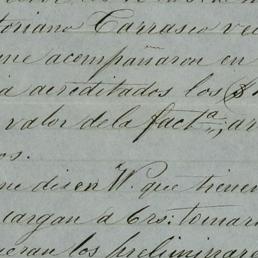 toriano Carrasco ve
me acompañaron en
a acreditados los $
valor de la fact.ª, ar
os.
me dicen W. que tienen
cargan a Grs: tomar
ieran los preliminar